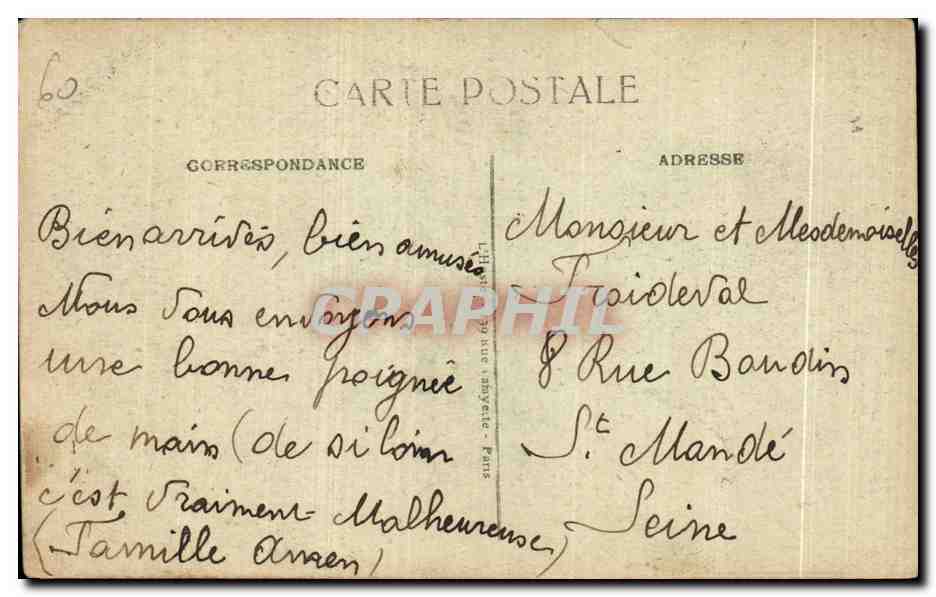 60
CARTE POSTALE
CORRESPONDANCE
Bien arrivés, bien amusés
Nous Vous envoyons
une bonne poignée
de main (de si loin
c'est vraiment Malheureuse)
(Famille
ADRESSE
Monsieur et Mesdemoiselles
Froideval
8 Rue Baudin
St. Mandé
Seine
Rue Lafayette - Paris
CPAPHIL